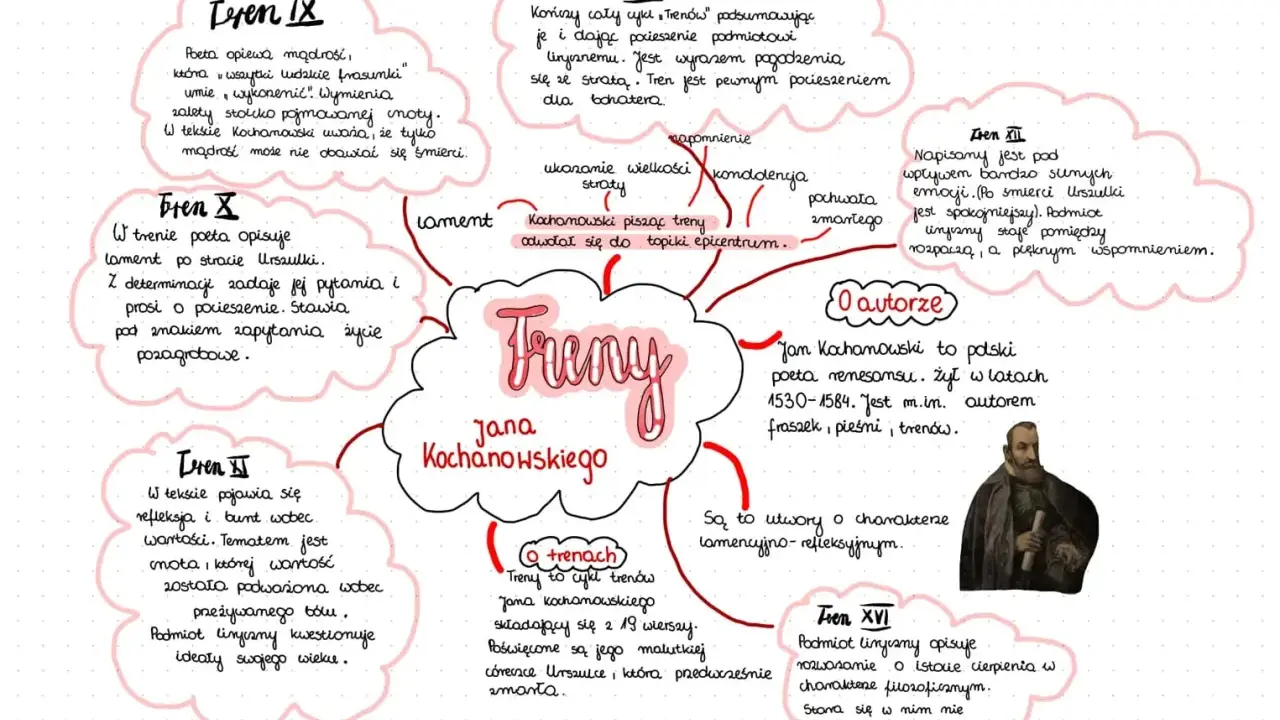 Tren IX
Poeta opiewa mądrość,
która "wszytki ludzkie frasunki"
umie "wykorzenić". Wymienia
zalety stoicko pojmowanej cnoty.
W tekście Kochanowski uważa, że tylko
mądrość może nie obawiać się śmierci.
Kończy cały cykl "Trenów" podsumowując
je i dając pocieszenie podmiotowi
lirycznemu. Jest wyrazem pogodzenia
się ze stratą. Tren jest pewnym pocieszeniem
dla bohatera.
Tren XII
Napisany jest pod
wpływem bardzo silnych
emocji. (Po śmierci Urszulki
jest spokojniejszy). Podmiot
liryczny staje pomiędzy
rozpaczą, a pięknym wspomnieniem.
napomnienie
ukazanie wielkości
straty
kondolencja
pochwała
zmarłego
lament
Kochanowski pisząc treny
odwołał się do topiki epicentrum.
Tren X
W trenie poeta opisuje
lament po stracie Urszulki.
Z determinacji zadaje jej pytania i
prosi o pocieszenie. Stawia
pod znakiem zapytania życie
pozagrobowe.
Treny
Jana
Kochanowskiego
O autorze
Jan Kochanowski to polski
poeta renesansu. Żył w latach
1530-1584. Jest m.in. autorem
fraszek, pieśni, trenów.
Tren XI
W tekście pojawia się
refleksja i bunt wobec
wartości. Tematem jest
cnota, której wartość
została podważona wobec
przeżywanego bólu.
Podmiot liryczny kwestionuje
ideały swojego wieku.
Są to utwory o charakterze
lamencyjno-refleksyjnym.
o trenach
Treny to cykl trenów
Jana Kochanowskiego
składający się z 19 wierszy.
Poświęcone są jego malutkiej
córeczce Urszulce, która przedwcześnie
zmarła.
Tren XVI
Podmiot liryczny opisuje
rozważanie o istocie cierpienia w
charakterze filozoficznym.
Stara się w nim nie